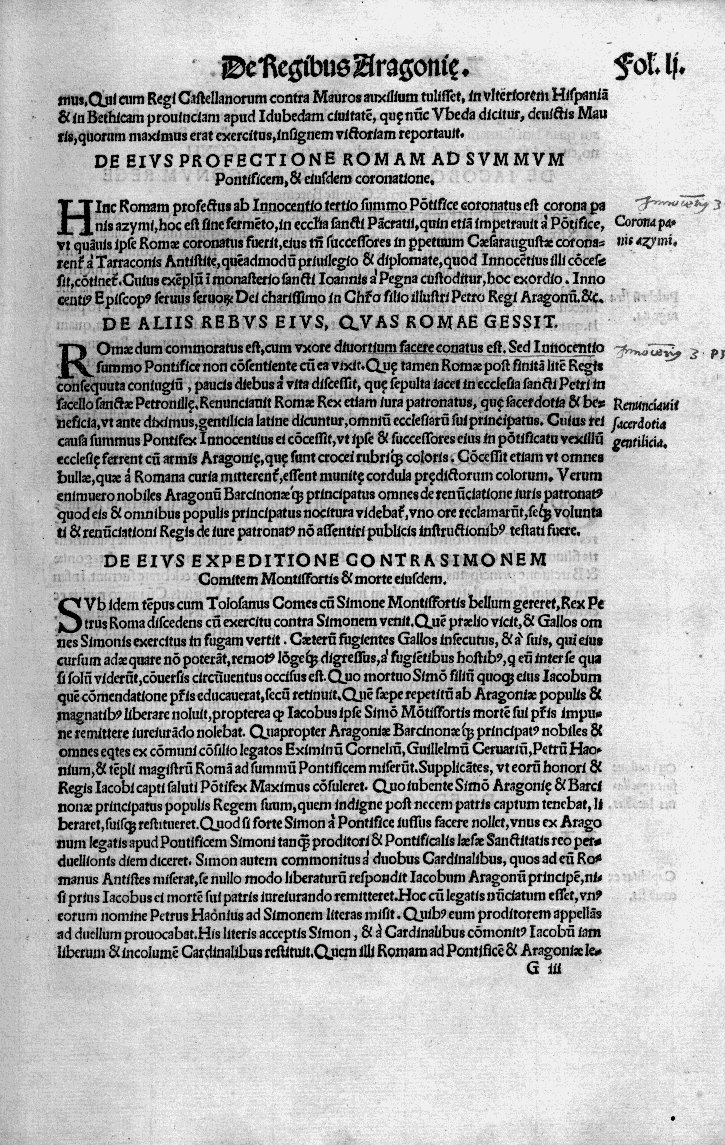 De Regibus Aragonię.
Fol. lj.
mus, Qui cum Regi Castellanorum contra Mauros auxilium tulisset, in vlteriorem Hispaniā
& in Bethicam prouinciam apud Idubedam ciuitatē, quę nūc Vbeda dicitur, deuictis Mau
ris, quorum maximus erat exercitus, insignem victoriam reportauit.
DE EIVS PROFECTIONE ROMAM AD SVMMVM
Pontificem, & eiusdem coronatione.
HInc Romam profectus ab Innocentio tertio summo Pōtifice coronatus est corona pa
nis azymi, hoc est sine fermēto, in eccl̄ia sancti Pācratii, quin etiā impetrauit à Pōtifice,
vt quāuis ipse Romæ coronatus fuerit, eius tn̄ successores in ppetuum Cæsaraugustæ corona-
rent̄ à Tarraconis Antistite, quēadmodū priuilegio & diplomate, quod Innocētius illi cōces-
sit, cōtinet̄. Cuius exēplū ī monasterio sancti Ioannis à Pegna custoditur, hoc exordio. Inno
centiꝰ Episcopꝰ seruus seruoꝝ Dei charissimo in Chr̄o filio illustri Petro Regi Aragonū, &c.
Corona pa-
nis azymi.
DE ALIIS REBVS EIVS, QVAS ROMAE GESSIT.
ROmæ dum commoratus est, cum vxore diuortium facere conatus est. Sed Innocentio
summo Pontifice non cōsentiente cū ea vixit. Quę tamen Romæ post finitā litē Regis
consequuta coniugiū, paucis diebus à vita discessit, quę sepulta iacet in ecclesia sancti Petri in
sacello sanctæ Petronillę. Renunciauit Romæ Rex etiam iura patronatus, quę sacerdotia & be-
neficia, vt ante diximus, gentilicia latine dicuntur, omniū ecclesiarū sui principatus. Cuius rei
causa summus Pontifex Innocentius ei cōcessit, vt ipse & successores eius in pōtificatu vexillū
ecclesię ferrent cū armis Aragonię, quę sunt crocei rubriqꝫ coloris. Cōcessit etiam vt omnes
bullæ, quæ à Romana curia mitterent̄, essent munitę cordula prędictorum colorum. Verum
enimuero nobiles Aragonū Barcinonæqꝫ principatus omnes de renūciatione iuris patronatꝰ
quod eis & omnibus populis principatus nocitura videbat̄, vno ore reclamarūt, seqꝫ volunta
ti & renūciationi Regis de iure patronatꝰ nō assentiri publicis instructionibꝰ testati fuere.
Renunciauit
sacerdotia
gentilicia.
DE EIVS EXPEDITIONE CONTRA SIMONEM
Comitem Montisfortis & morte eiusdem.
SVb idem tēpus cum Tolosanus Comes cū Simone Montisfortis bellum gereret, Rex Pe
trus Roma discedens cū exercitu contra Simonem venit. Quē prælio vicit, & Gallos om
nes Simonis exercitus in fugam vertit. Cæterū fugientes Gallos insecutus, & à suis, qui eius
cursum adæquare nō poterāt, remotꝰ lōgeqꝫ digressus, à fugiētibus hostibꝰ, q eū inter se qua
si solū viderūt, cōuersis circūuentus occisus est. Quo mortuo Simō filiū quoqꝫ eius Iacobum
quē cōmendatione pr̄is educauerat, secū retinuit. Quē sæpe repetitū ab Aragoniæ populis &
magnatibꝰ liberare noluit, propterea ꝙ Iacobus ipse Simō Mōtisfortis mortē sui pr̄is impu-
ne remittere iureiurādo nolebat. Quapropter Aragoniæ Barcinonæqꝫ principatꝰ nobiles &
omnes eqtes ex cōmuni cōsilio legatos Eximinū Corneliū, Guillelmū Ceruariū, Petrū Hao-
nium, & tēpli magistrū Romā ad summū Pontificem miserūt. Supplicātes, vt eorū honori &
Regis Iacobi capti saluti Pōtifex Maximus cōsuleret. Quo iubente Simō Aragonię & Barci
nonæ principatus populis Regem suum, quem indigne post necem patris captum tenebat, li
beraret, suisqꝫ restitueret. Quod si forte Simon à Pontifice iussus facere nollet, vnus ex Arago
num legatis apud Pontificem Simoni tanqꝫ proditori & Pontificalis læsæ Sanctitatis reo per-
duellionis diem diceret. Simon autem commonitus à duobus Cardinalibus, quos ad eū Ro-
manus Antistes miserat, se nullo modo liberaturū respondit Iacobum Aragonū principē, ni-
si prius Iacobus ei mortē sui patris iureiurando remitteret. Hoc cū legatis nūciatum esset, vnꝰ
eorum nomine Petrus Haōnius ad Simonem literas misit. Quibꝰ eum proditorem appellās
ad duellum prouocabat. His literis acceptis Simon, & à Cardinalibus cōmonitꝰ Iacobū iam
liberum & incolumē Cardinalibus restituit. Quem illi Romam ad Pontificē & Aragoniæ le-
G iii